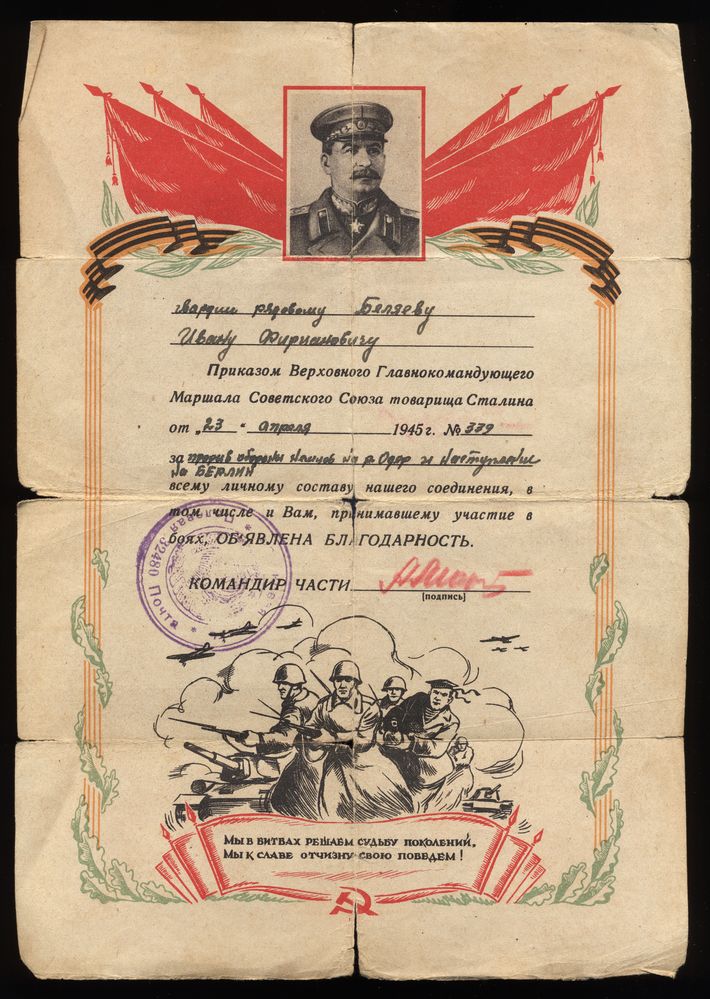 гвардии рядовому Беляеву
Ивану Фириановичу
Приказом Верховного Главнокомандующего
Маршала Советского Союза товарища Сталина
от „23 “ апреля 1945 г. № 339
за прорыв обороны немцев на р. Одер и наступление
на БЕРЛИН
всему личному составу нашего соединения, в
том числе и Вам, принимавшему участие в
боях, ОБ‘ЯВЛЕНА БЛАГОДАРНОСТЬ.
КОМАНДИР ЧАСТИ
[подпись]
Полевая Почта 32480
МЫ В БИТВАХ РЕШАЕМ СУДЬБУ ПОКОЛЕНИЙ,
МЫ К СЛАВЕ ОТЧИЗНУ СВОЮ ПОВЕДЕМ!